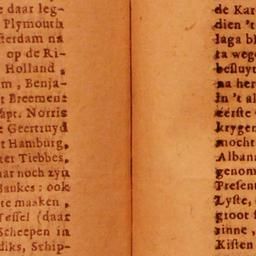 e daar leg-
Plymouth
sterdam na
op de Ri-
Holland,
m, Benja-
t Breemen:
apt. Norris
e Geertruyd
t Hamburg,
ter Tiebbes,
aar noch zyn
Baukes: ook
te masken,
Tessel (daar
Scheepen in
diks, Schip-
de Kar
dien 't
laga bl
ta weg
besluyt
na her
in 't al
eerste
krygen
mocht
Alban
genom
Presen
Lyste,
groot f
zinne,
Kisten